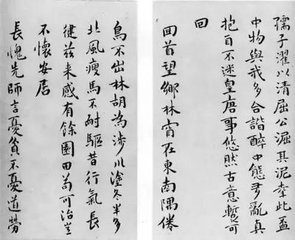 孺子濯以清屈公淈其泥奉此盃
中物與我多合諧醉中態多亂真
抱自不迷皇唐事悠然古意暫可
回
回首望鄉林在東南隅倦
鳥不出林胡為涉川塗冬半多
北風瘦馬不耐驅昔行氣長
健茲来感有餘園田苟可治豈
不懷安居
長愧先師言憂貧不憂道勞